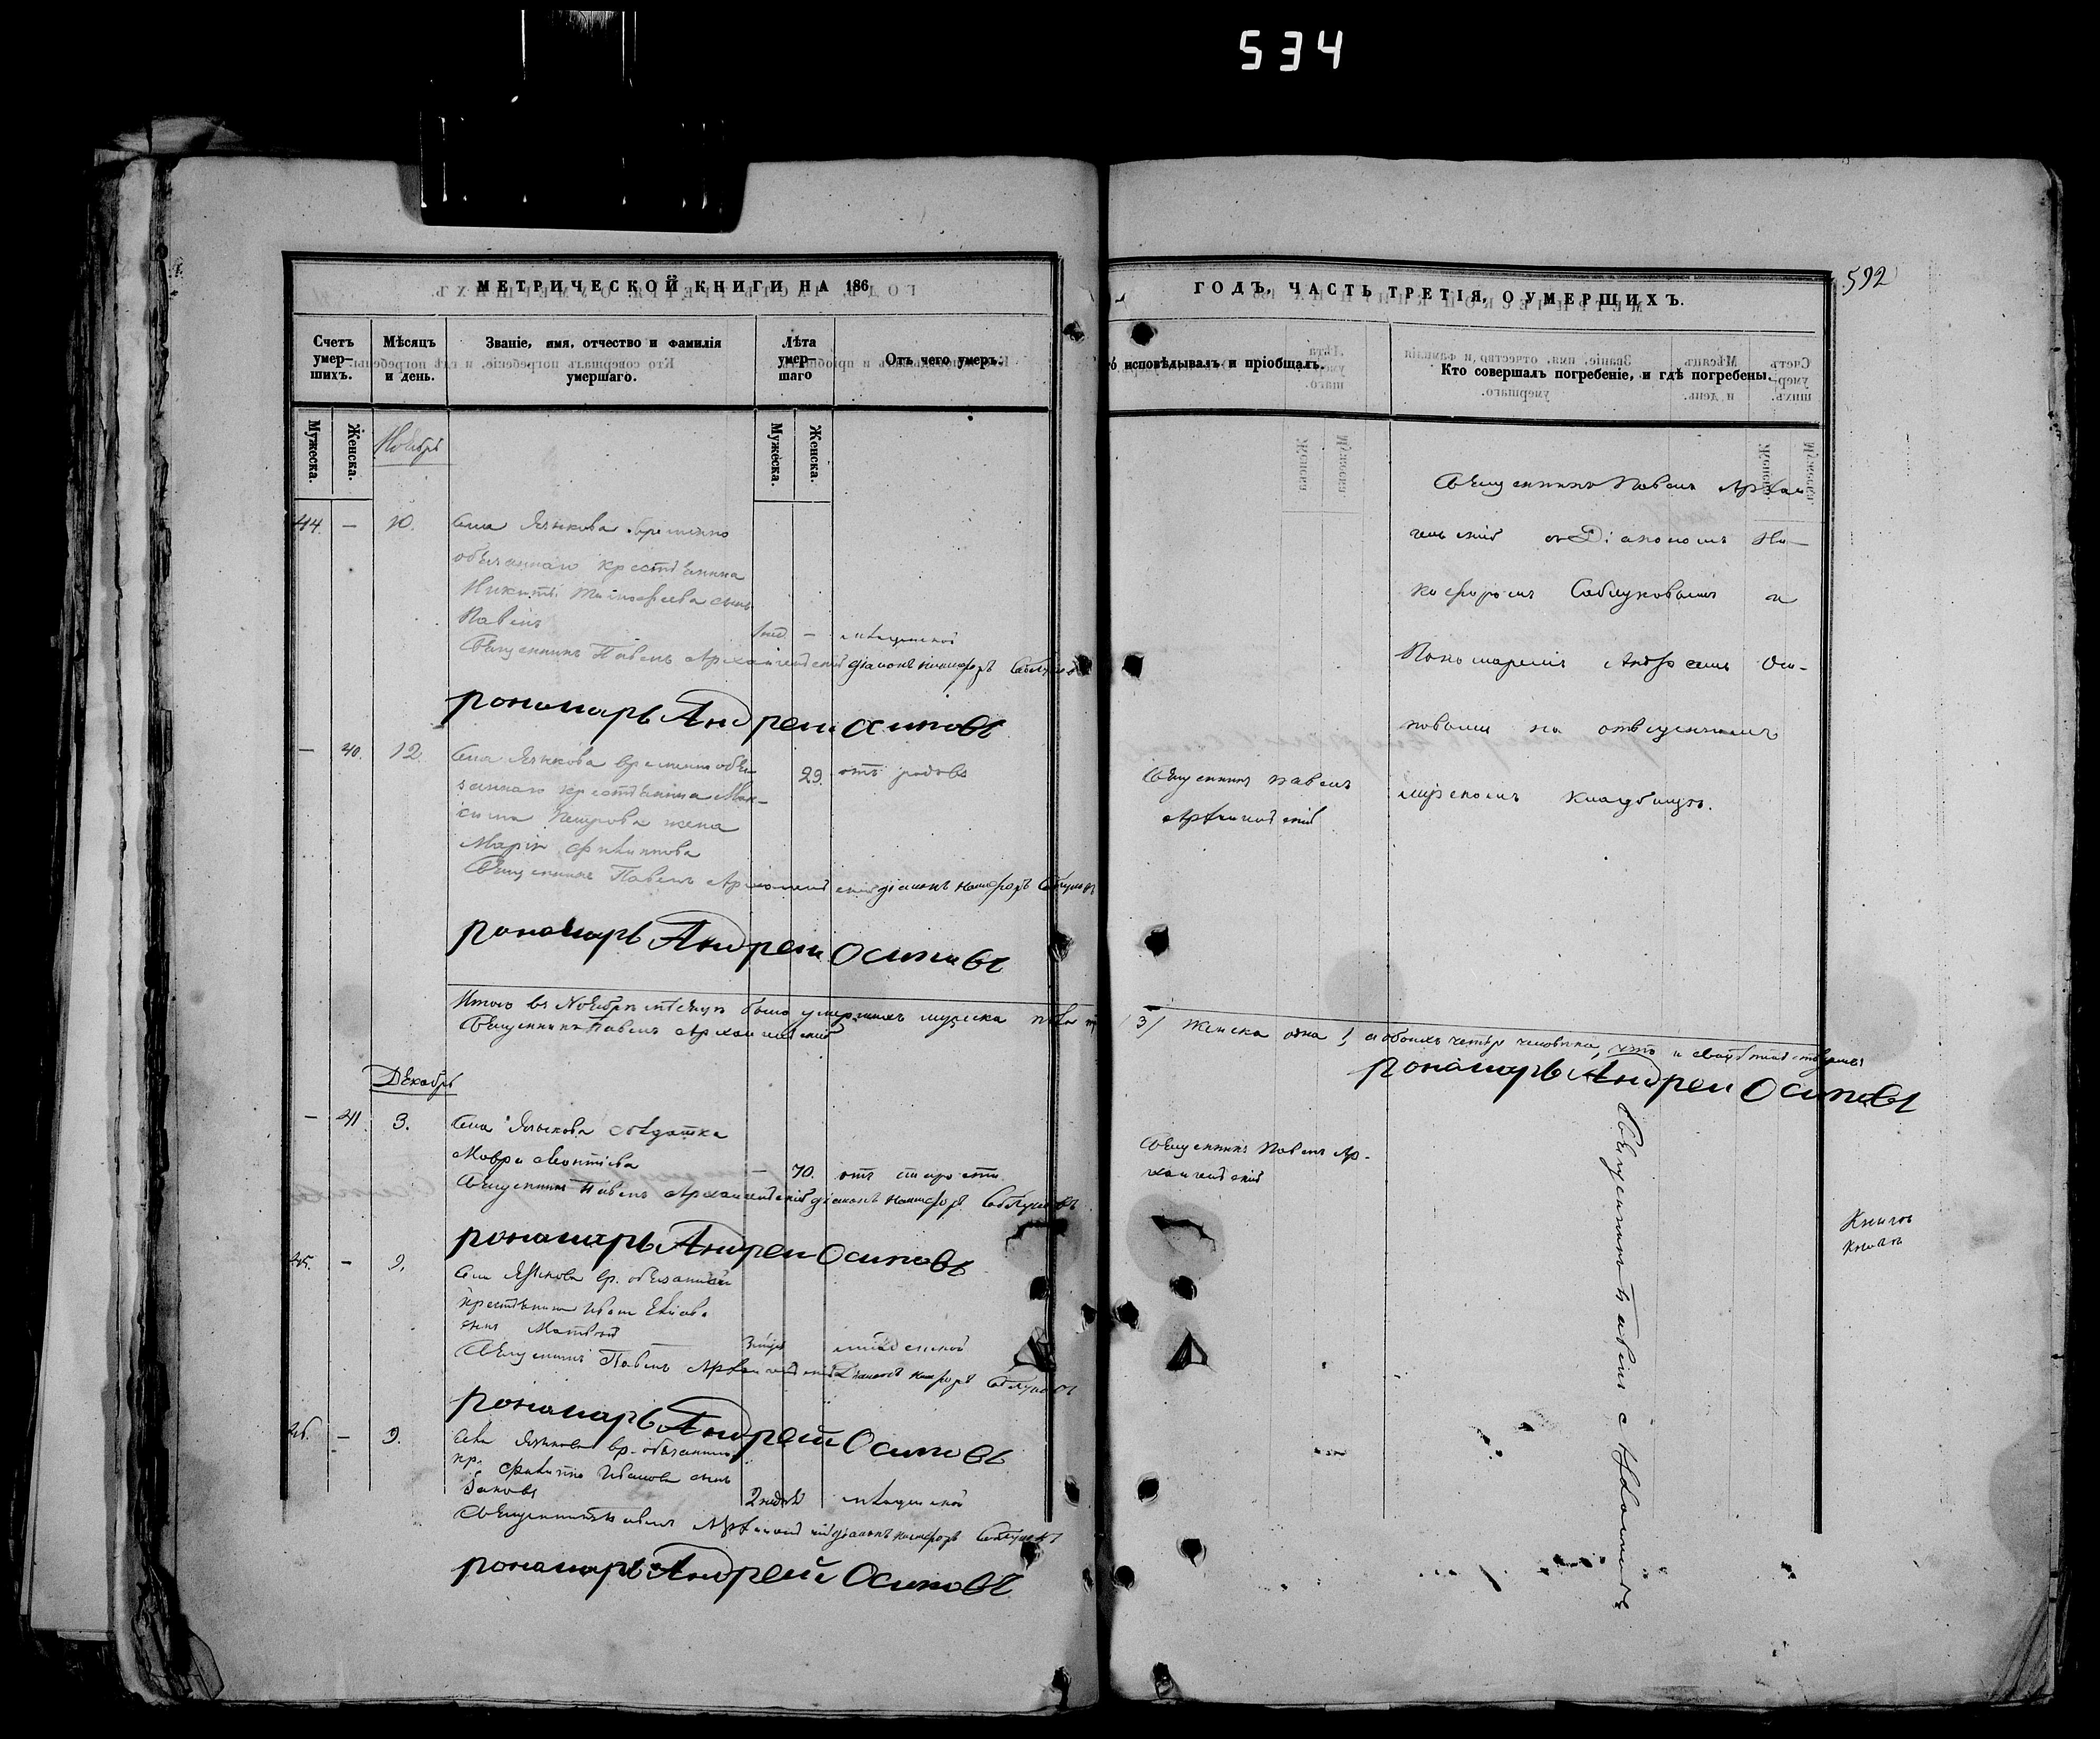 534
МЕТРИЧЕСКОЙ КНИГИ НА 186
Счетъ умер-шихъ.
Мѣсяцъ и день.
Званіе, имя, отчество и фамилія умершаго.
Лѣта умер-шаго
Отъ чего умеръ.
Мужеска.
Женска.
Мужеска.
Женска.
Ноябрь
44 — 10. Села Языкова временно
обязаннаго крестьянина
Никиты Тимофеева сынъ
Павелъ
Священникъ Павелъ Архангельскій діаконъ Никифоръ Саблуковъ
пономарь Андрей Осиповъ
— 40. 12. Села Языкова временно обя-
заннаго крестьянина Мак-
сима Петрова жена
Марія Филиппова
29. отъ родовъ
Священникъ Павелъ Архангельскій діаконъ Никифоръ Саблуковъ
пономарь Андрей Осиповъ
Итого въ Ноябрѣ мѣсяцѣ было умершихъ мужеска пола
Священникъ Павелъ Архангельскій
Декабрь
— 41. 3. Села Языкова солдатка
Мавра Леонтіева
— 70. отъ старости
Священникъ Павелъ Архангельскій діаконъ Никифоръ Саблуковъ
пономарь Андрей Осиповъ
45. — 9. Села Языкова вр. обязаннаго
крестьянина Ивана
сынъ Матвей
младенской
Священникъ Павелъ Архангельскій Діаконъ Никифоръ Саблуковъ
пономарь Андрей Осиповъ
46. — 9. Села Языкова вр. обязаннаго
кр. Филиппа Иванова сынъ
Яковъ
2 недѣл.
Священникъ Павелъ Архангельскій діаконъ Никифоръ Саблуковъ
пономарь Андрей Осиповъ
ГОДЪ, ЧАСТЬ ТРЕТІЯ, О УМЕРШИХЪ.
592
исповѣдывалъ и пріобщалъ.
Кто совершалъ погребеніе, и гдѣ погребены.
Священникъ Павелъ Архан
гельскій съ Діакономъ Ни-
кифоромъ Саблуковымъ и
Пономаремъ Андреемъ Оси-
повымъ на отведенномъ
мірскомъ кладбищѣ.
Священникъ Павелъ
Архангельскій
3/ Женска одна 1, а обоихъ четыре человѣка, что и свидѣтельствуемъ
пономарь Андрей Осиповъ
Священникъ Павелъ Ар-
хангельскій
Священникъ Павелъ Архангельскій